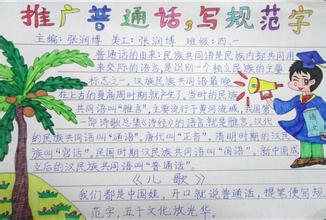 推广普通话,写规范字
主编:张润博 美工:张润博 班级:四.一
普通话的由来:民族共同语是民族内部共同用
来交际的语言,是识别一个独立民族的主要
标志之一,汉族民族共同语最晚
在上古的夏商周时期就产生了,当时的民族
共同语叫“雅言”,主要流行于黄河流域,我国第
一部诗歌总集《诗经》的语言就是雅言,汉代
的民族共同语叫“通语”,唐代叫“正音”,清明时期的汉民
族叫“官话”,民国时期汉民族共同语叫“国语”,新中国成
立后的汉民族共同语叫“普通话”。
《儿歌》
我们都是中国娃,开口就说普通话,提笔便写规
范字,五千文化放光华。